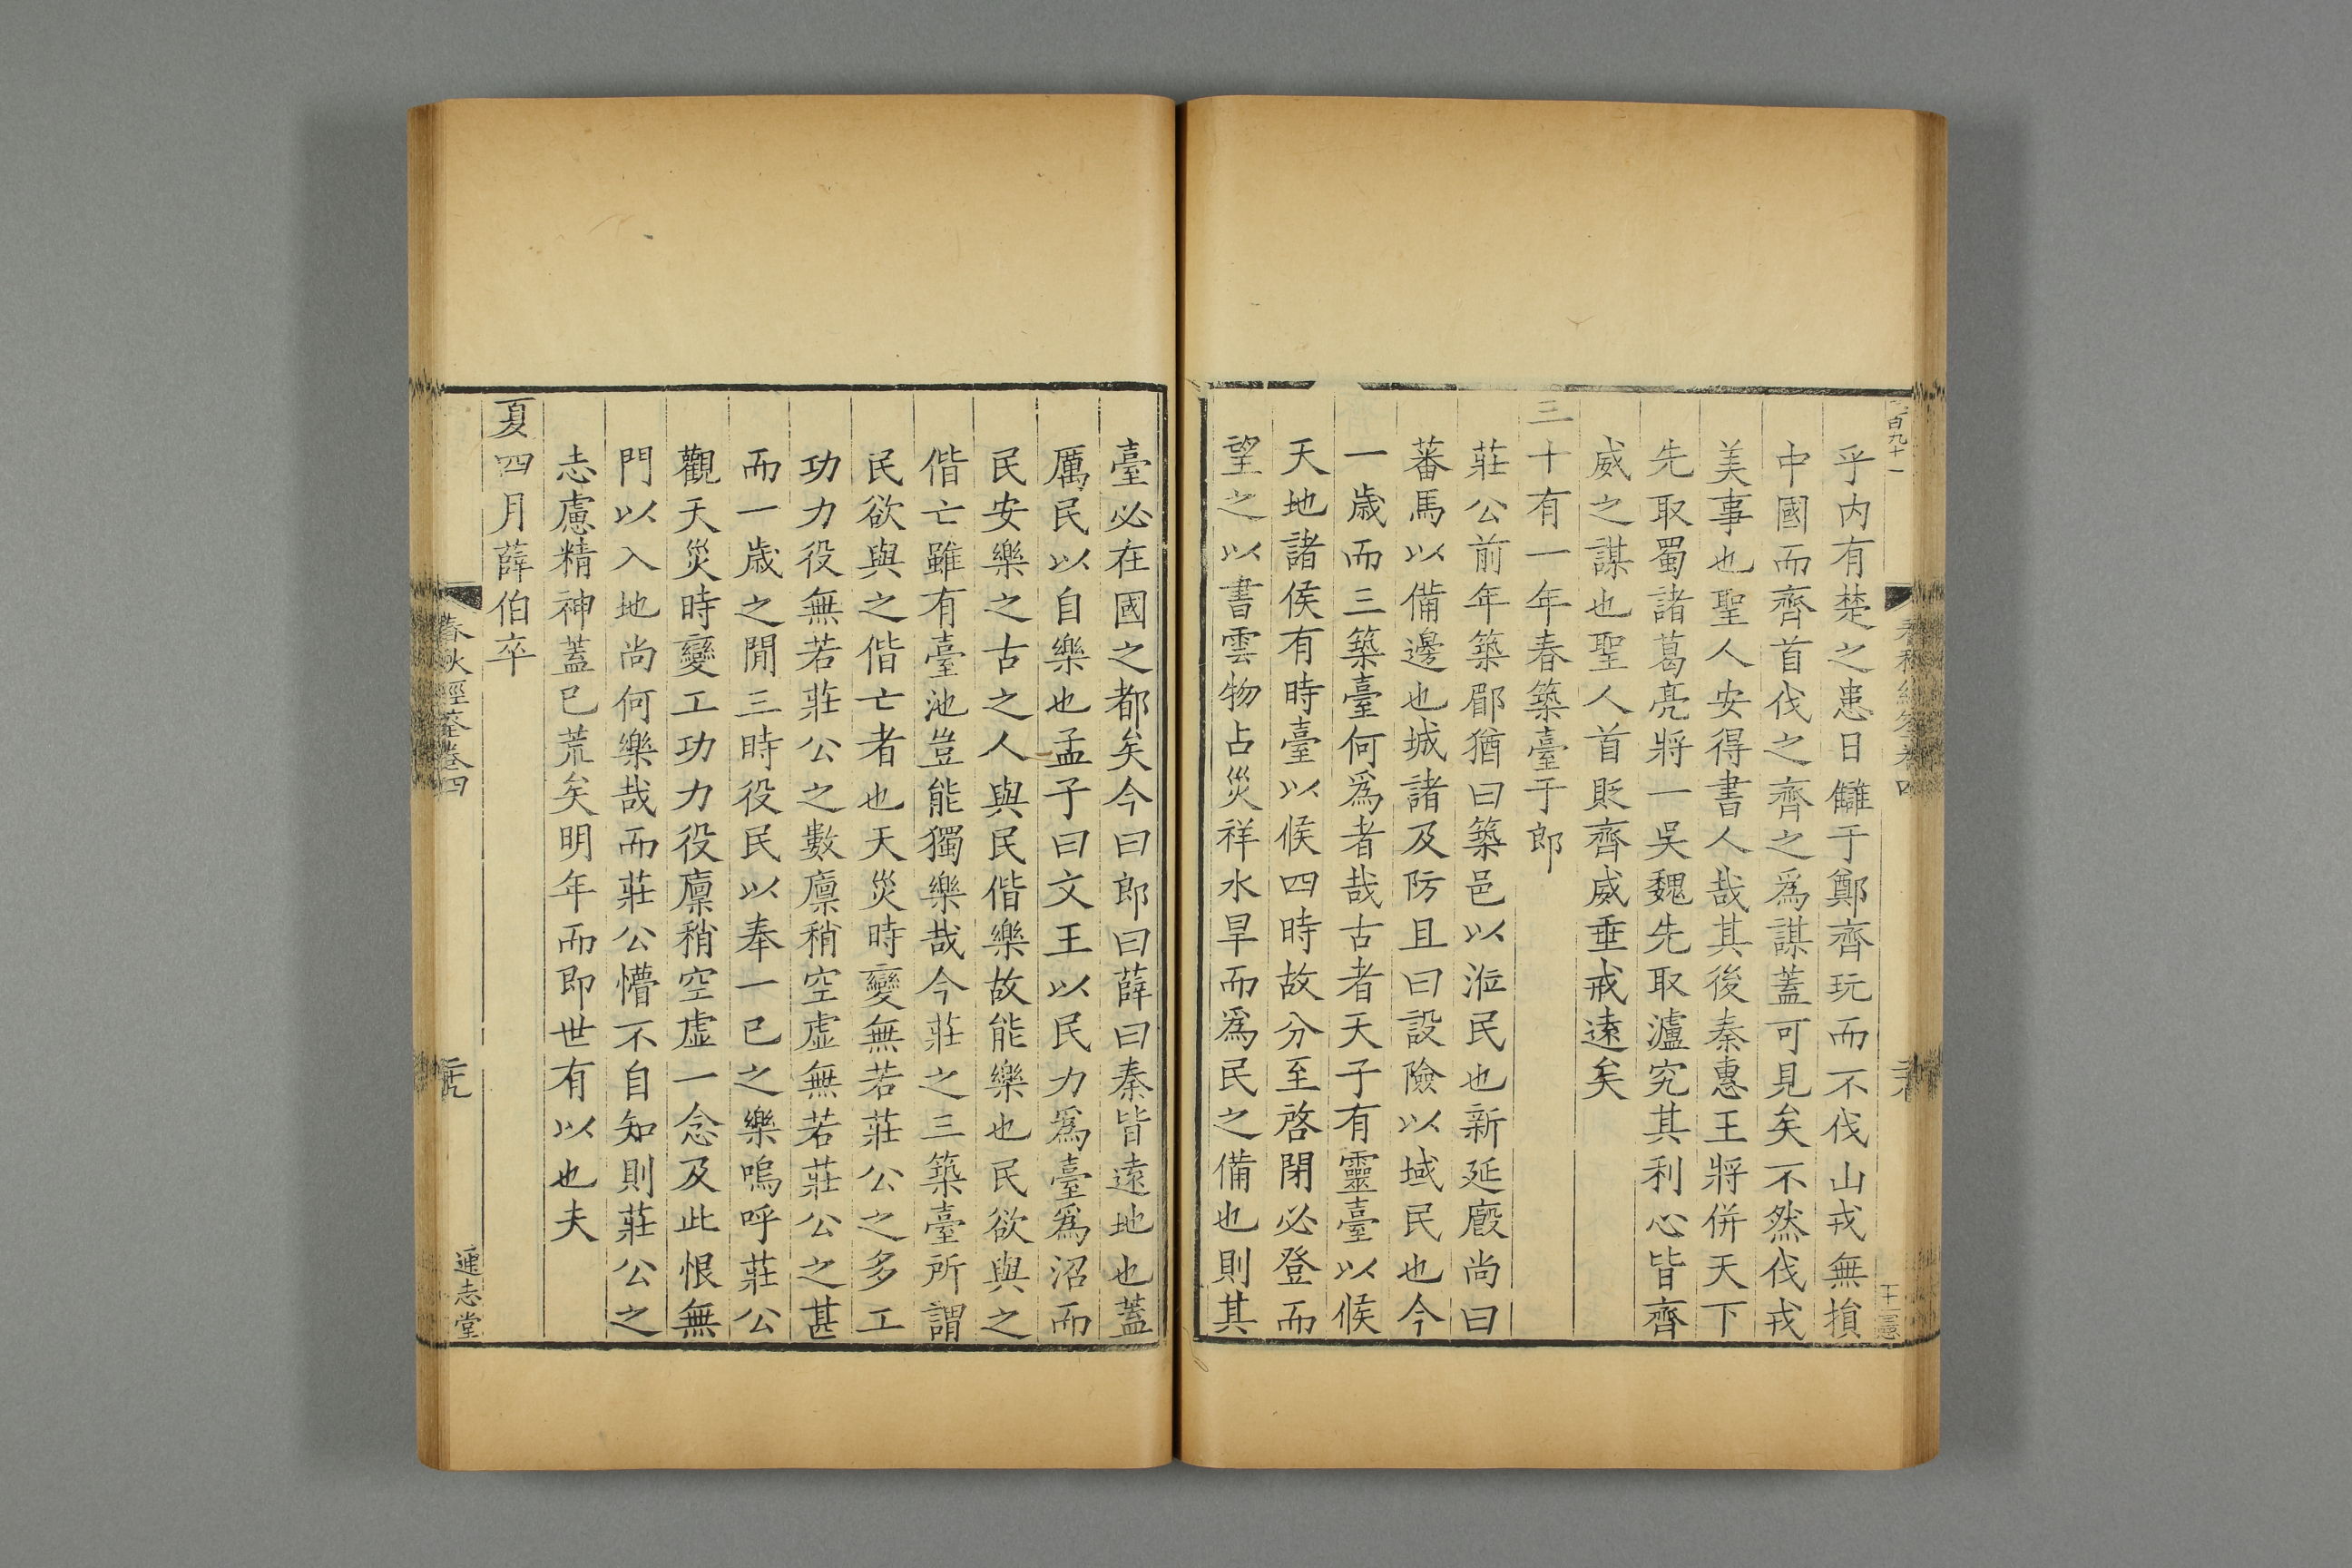 乎内有楚之患日讎于鄭齊玩而不伐山戎無損
中國而齊首伐之齊之爲謀蓋可見矣不然伐戎
美事也聖人安得書人哉其後秦惠王將併天下
先取蜀諸葛亮將一吳魏先取瀘究其利心皆齊
威之謀也聖人首貶齊威垂戒遠矣
三十有一年春築臺于郎
莊公前年築郿猶曰築邑以涖民也新延廄尚曰
蕃馬以備邊也城諸及防且曰設險以域民也今
一歲而三築臺何爲者哉古者天子有靈臺以候
天地諸侯有時臺以候四時故分至啓閉必登而
望之以書雲物占災祥水旱而爲民之備也則其
臺必在國之都矣今曰郎曰薛曰秦皆遠地也蓋
厲民以自樂也孟子曰文王以民力爲臺爲沼而
民安樂之古之人與民偕樂故能樂也民欲與之
偕亡雖有臺池豈能獨樂哉今莊之三築臺所謂
民欲與之偕亡者也天災時變無若莊公之多工
功力役無若莊公之數廩稍空虛無若莊公之甚
而一歲之閒三時役民以奉一已之樂嗚呼莊公
觀天災時變工功力役廩稍空虛一念及此恨無
門以入地尚何樂哉而莊公懵不自知則莊公之
志慮精神蓋巳荒矣明年而即世有以也夫
夏四月薛伯卒
春秋經筌卷四
通志堂